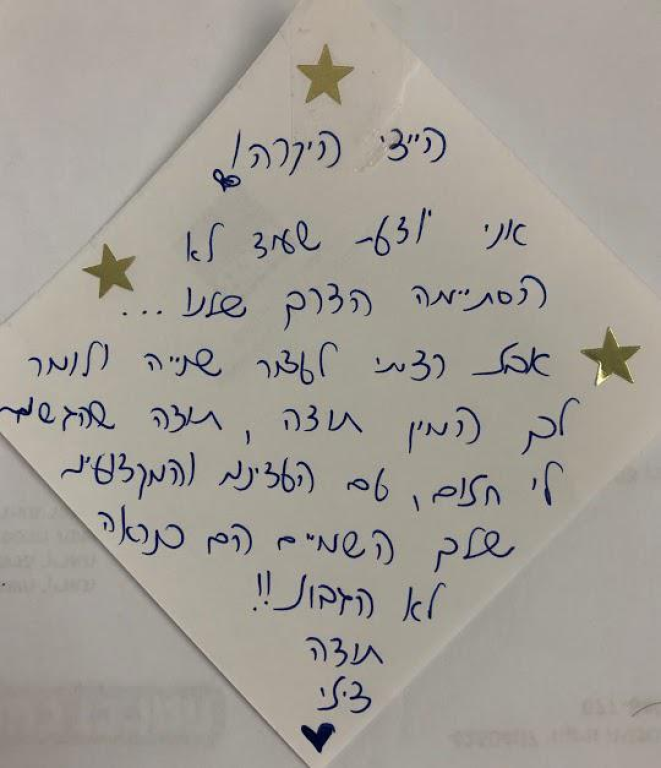 היידי היקרה!
אני יודעת שעוד לא
הסתיימה הדרך שלנו...
אבל רציתי לעצור שנייה ולומר
לך המון תודה, תודה שהגשמת
לי חלום, עם העדינות והמקצועיות
שלך השמיים הם כנראה
לא הגבול!!
תודה